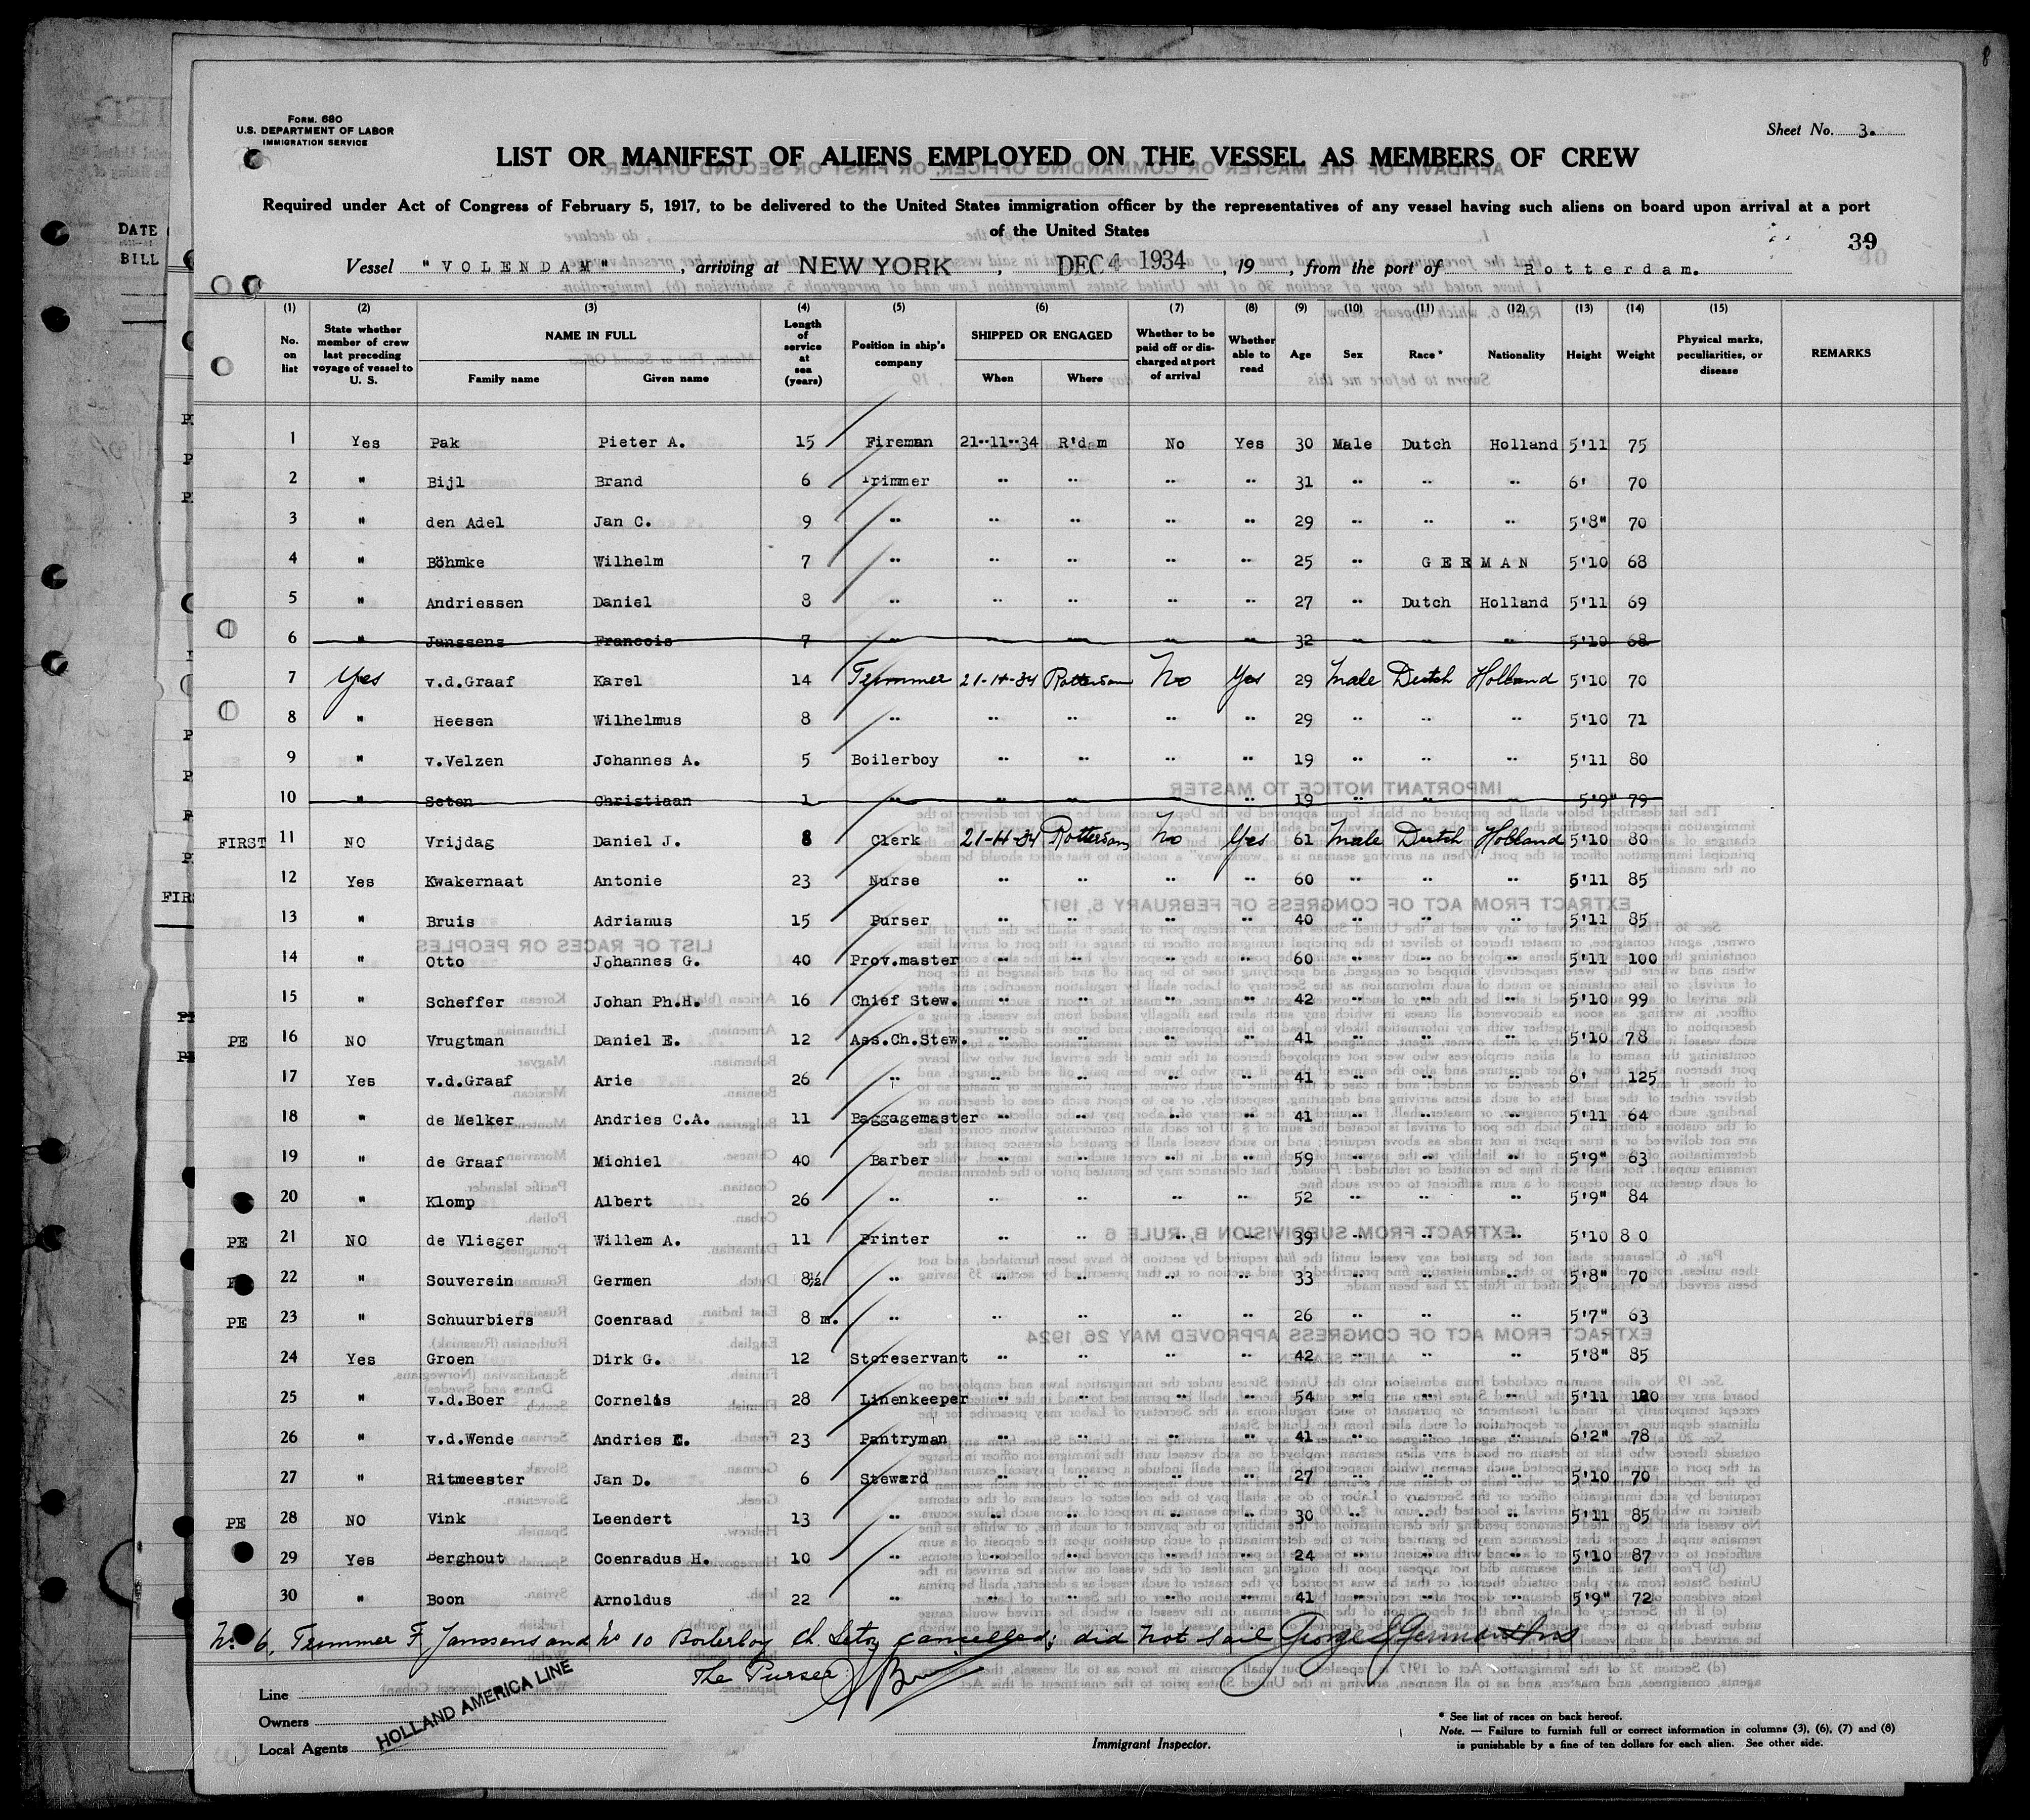 8
FORM. 680
U.S. DEPARTMENT OF LABOR
IMMIGRATION SERVICE
Sheet No. 3.
LIST OR MANIFEST OF ALIENS EMPLOYED ON THE VESSEL AS MEMBERS OF CREW
Required under Act of Congress of February 5, 1917, to be delivered to the United States immigration officer by the representatives of any vessel having such aliens on board upon arrival at a port
of the United States
DATE
BILL
39
Vessel "VOLENDAM", arriving at NEW YORK, DEC 4 1934, 19, from the port of Rotterdam.
(1) (2) (3) (4) (5) (6) (7) (8) (9) (10) (11) (12) (13) (14) (15)
No. on list | State whether member of crew last preceding voyage of vessel to U. S. | NAME IN FULL Family name Given name | Length of service at sea (years) | Position in ship's company | SHIPPED OR ENGAGED When Where | Whether to be paid off or discharged at port of arrival | Whether able to read | Age | Sex | Race * | Nationality | Height | Weight | Physical marks, peculiarities, or disease | REMARKS
1 Yes Pak Pieter A. 15 Fireman 21-11-34 R'dam No Yes 30 Male Dutch Holland 5'11 75
2 " Bijl Brand 6 Trimmer " " " " 31 " " " 6' 70
3 " den Adel Jan C. 9 " " " " " 29 " " " 5'8" 70
4 " Böhmke Wilhelm 7 " " " " " 25 " GERMAN 5'10 68
5 " Andriessen Daniel 8 " " " " " 27 " Dutch Holland 5'11 69
6 " Janssens Francois 7 " " " " " 32 " " " 5'10 68
7 Yes v.d.Graaf Karel 14 Trimmer 21-11-34 Rotterdam No Yes 29 Male Dutch Holland 5'10 70
8 " Heesen Wilhelmus 8 " " " " " 29 " " " 5'10 71
9 " v.Velzen Johannes A. 5 Boilerboy " " " " 19 " " " 5'11 80
10 " Seton Christiaan 1 " " " " " 19 " " " 5'9" 79
FIRST 11 NO Vrijdag Daniel J. 8 Clerk 21-11-34 Rotterdam No Yes 61 Male Dutch Holland 5'10 80
12 Yes Kwakernaat Antonie 23 Nurse " " " " 60 " " " 5'11 85
13 " Bruis Adrianus 15 Purser " " " " 40 " " " 5'11 85
14 " Otto Johannes G. 40 Prov.master " " " " 60 " " " 5'11 100
15 " Scheffer Johan Ph.H. 16 Chief Stew. " " " " 42 " " " 5'10 99
PE 16 NO Vrugtman Daniel E. 12 Ass.Ch.Stew. " " " " 41 " " " 5'10 78
17 Yes v.d.Graaf Arie 26 " " " " " 41 " " " 6' 125
18 " de Melker Andries C.A. 11 Baggagemaster " " " " 41 " " " 5'11 64
19 " de Graaf Michiel 40 Barber " " " " 59 " " " 5'9" 63
20 " Klomp Albert 26 " " " " " 52 " " " 5'9" 84
PE 21 NO de Vlieger Willem A. 11 Printer " " " " 39 " " " 5'10 80
22 " Souverein Germen 8½ " " " " " 33 " " " 5'8" 70
PE 23 " Schuurbiers Coenraad 8 m. " " " " " 26 " " " 5'7" 63
24 Yes Groen Dirk G. 12 Storeservant " " " " 42 " " " 5'8" 85
25 " v.d.Boer Cornelis 28 Linenkeeper " " " " 54 " " " 5'11 120
26 " v.d.Wende Andries E. 23 Pantryman " " " " 41 " " " 6'2" 78
27 " Ritmeester Jan D. 6 Steward " " " " 27 " " " 5'10 70
PE 28 NO Vink Leendert 13 " " " " " 30 " " " 5'11 85
29 Yes Berghout Coenradus H. 10 " " " " " 24 " " " 5'10 87
30 " Boon Arnoldus 22 " " " " " 41 " " " 5'9" 72
No 6, Trimmer F. Janssens and No 10 Boilerboy Ch. Seton cancelled; did not sail
The Purser:
Line
Owners
Local Agents
HOLLAND AMERICA LINE
Immigrant Inspector.
* See list of races on back hereof.
Note. — Failure to furnish full or correct information in columns (3), (6), (7) and (8)
is punishable by a fine of ten dollars for each alien. See other side.